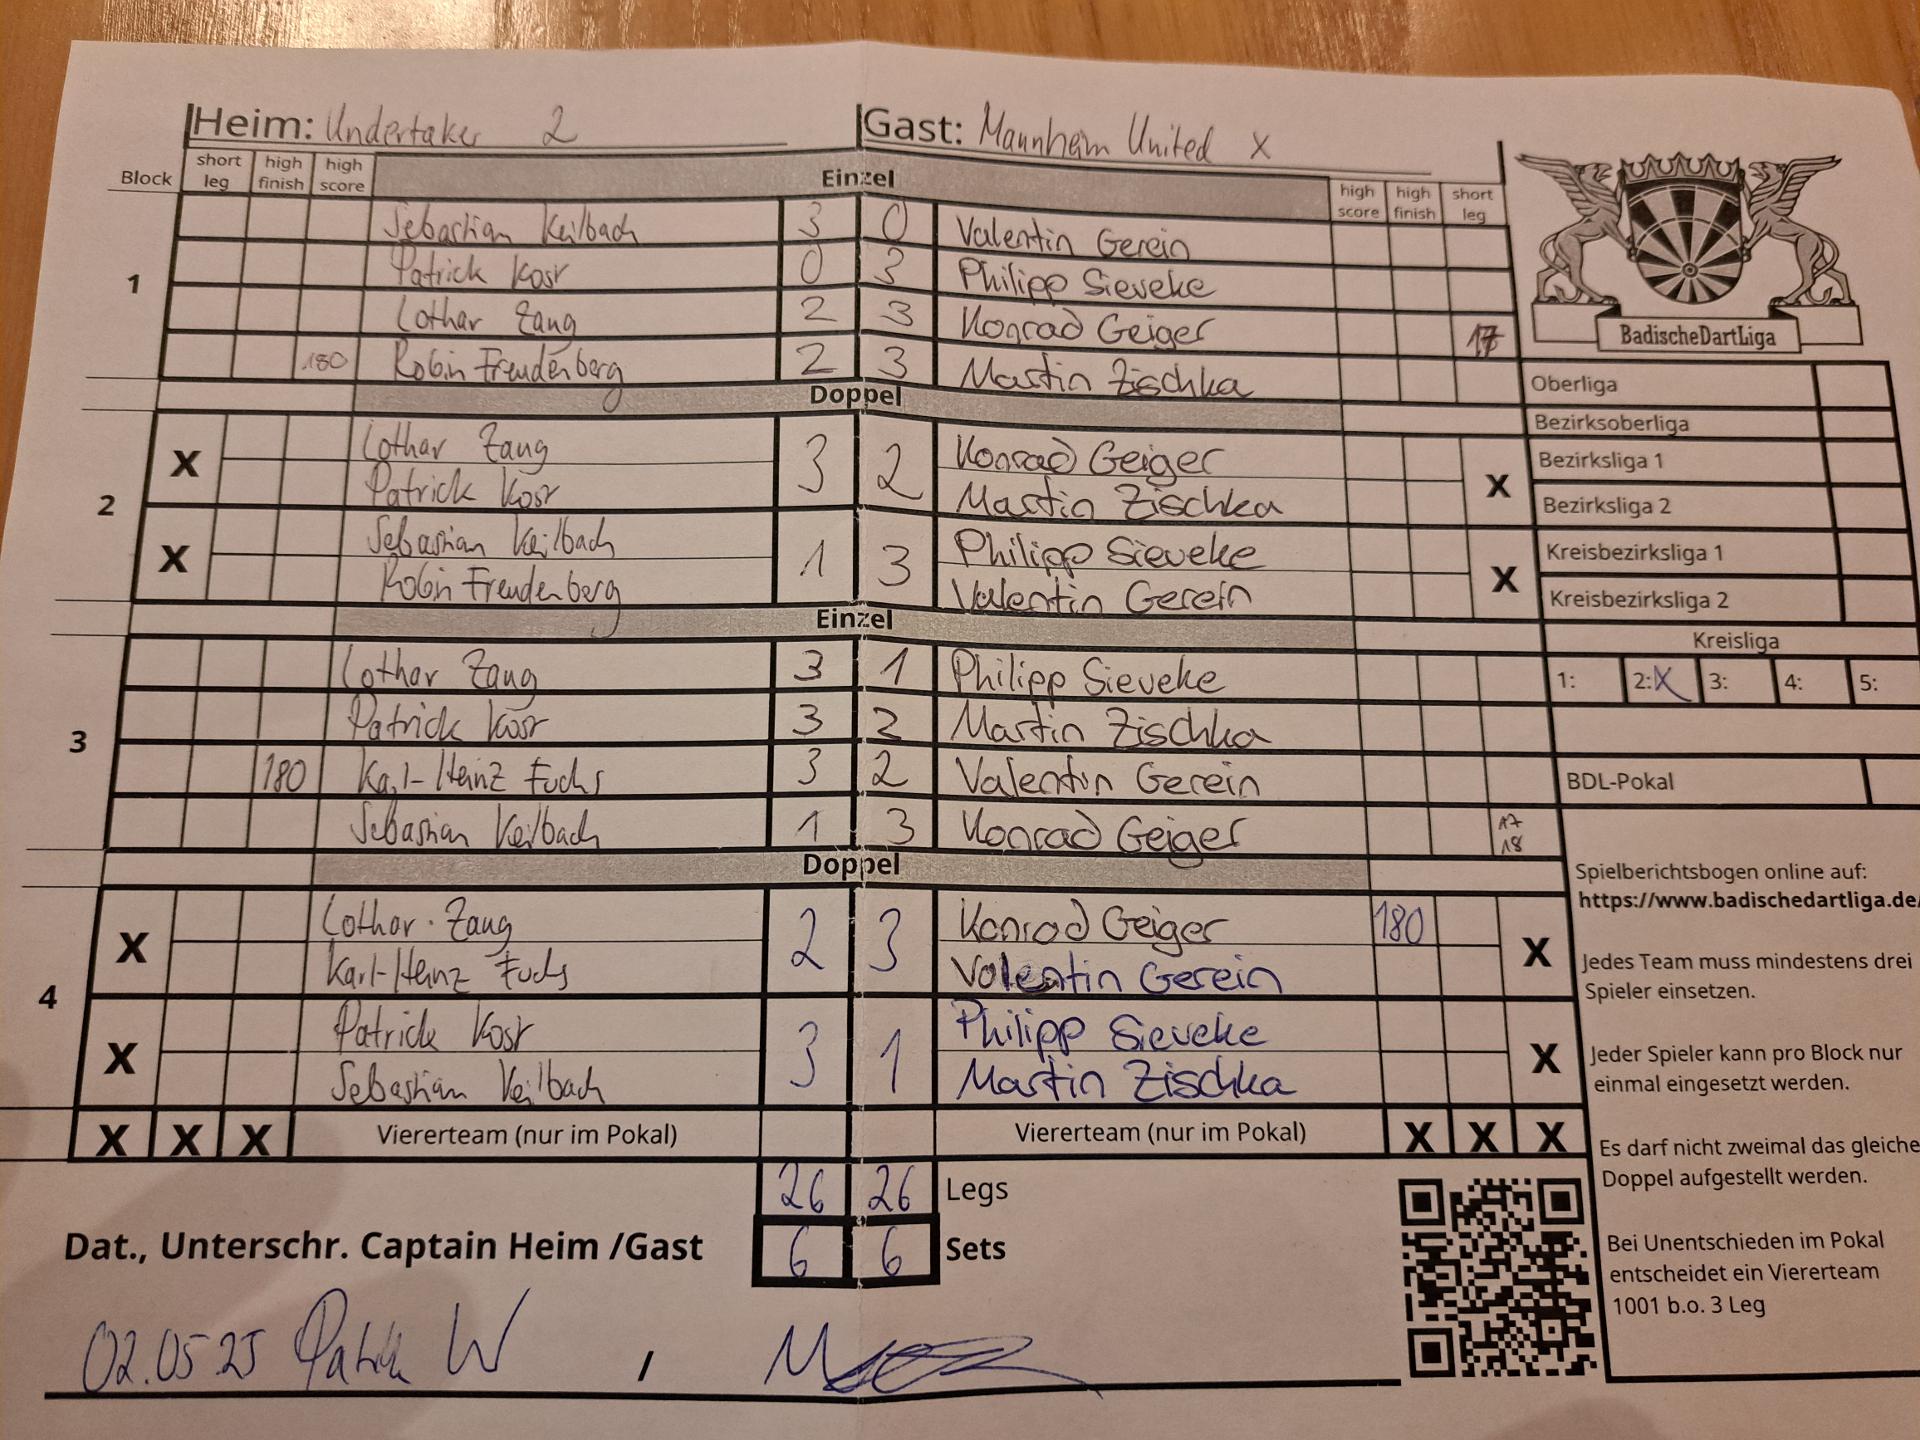 Heim: Undertaker 2 Gast: Mannheim United X
Block short leg high finish high score Einzel high score high finish short leg
1
Sebastian Keilbach 3 0 Valentin Gerein
Patrick Kosr 0 3 Philipp Sieveke
Lothar Zang 2 3 Konrad Geiger 17
180 Robin Freudenberg 2 3 Martin Zischka
Doppel
2
X Lothar Zang 3 2 Konrad Geiger X
Patrick Kosr Martin Zischka
X Sebastian Keilbach 1 3 Philipp Sieveke X
Robin Freudenberg Valentin Gerein
Einzel
3
Lothar Zang 3 1 Philipp Sieveke
Patrick Kosr 3 2 Martin Zischka
180 Karl-Heinz Fuchs 3 2 Valentin Gerein
Sebastian Keilbach 1 3 Konrad Geiger 17 18
Doppel
4
X Lothar Zang 2 3 Konrad Geiger 180 X
Karl-Heinz Fuchs Valentin Gerein
X Patrick Kosr 3 1 Philipp Sieveke X
Sebastian Keilbach Martin Zischka
X X X Viererteam (nur im Pokal) Viererteam (nur im Pokal) X X X
26 26 Legs
Dat., Unterschr. Captain Heim /Gast 6 6 Sets
02.05.25 Patrick W /
BadischeDartLiga
Oberliga
Bezirksoberliga
Bezirksliga 1
Bezirksliga 2
Kreisbezirksliga 1
Kreisbezirksliga 2
Kreisliga
1: 2:X 3: 4: 5:
BDL-Pokal
Spielberichtsbogen online auf:
https://www.badischedartliga.de/
Jedes Team muss mindestens drei
Spieler einsetzen.
Jeder Spieler kann pro Block nur
einmal eingesetzt werden.
Es darf nicht zweimal das gleiche
Doppel aufgestellt werden.
Bei Unentschieden im Pokal
entscheidet ein Viererteam
1001 b.o. 3 Leg